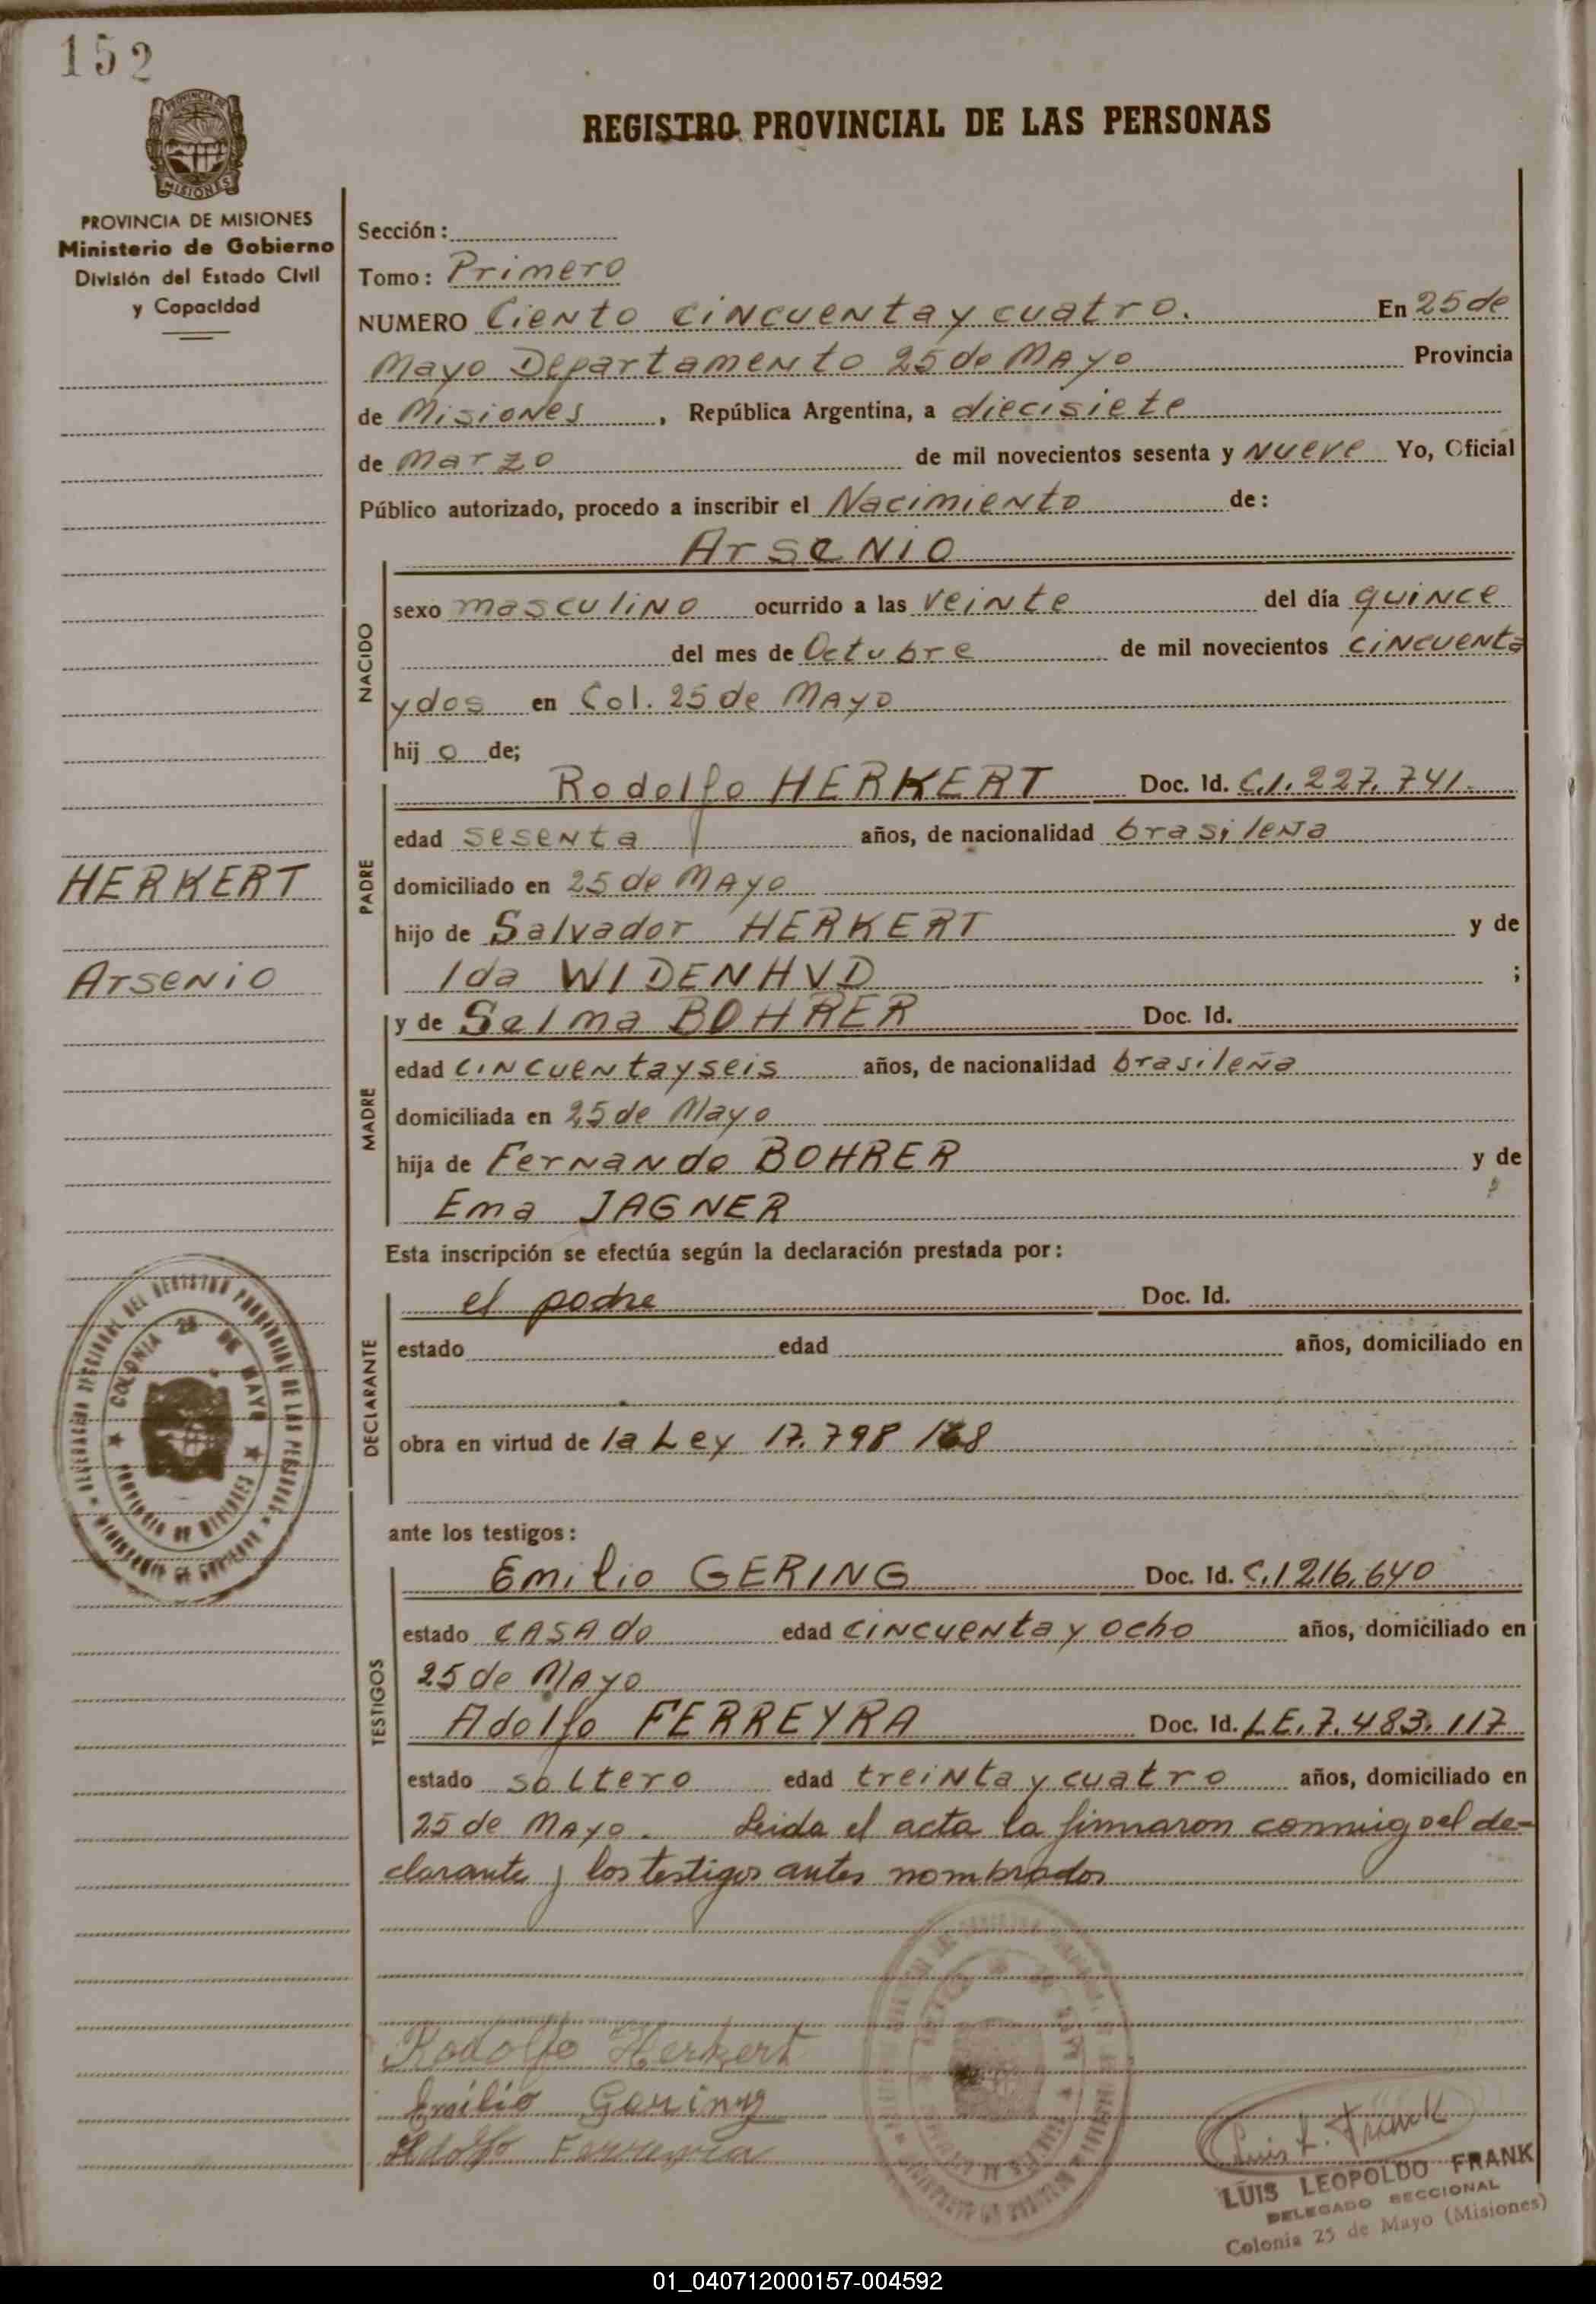 152
REGISTRO PROVINCIAL DE LAS PERSONAS
MISIONES
PROVINCIA DE MISIONES
Ministerio de Gobierno
División del Estado Civil
y Capacidad
Sección :
Tomo : Primero
NUMERO Ciento cincuenta y cuatro. En 25 de
Mayo Departamento 25 de Mayo Provincia
de Misiones , República Argentina, a diecisiete
de Marzo de mil novecientos sesenta y nueve Yo, Oficial
Público autorizado, procedo a inscribir el Nacimiento de :
Arsenio
NACIDO
sexo masculino ocurrido a las veinte del día quince
del mes de Octubre de mil novecientos cincuenta
y dos en Col. 25 de Mayo
hij o de;
PADRE
Rodolfo HERKERT Doc. Id. C.I. 227.741.
edad sesenta años, de nacionalidad brasileña
domiciliado en 25 de Mayo
HERKERT
hijo de Salvador HERKERT y de
Arsenio
Ida WIDENHVD ;
MADRE
y de Selma BOHRER Doc. Id.
edad cincuenta y seis años, de nacionalidad brasileña
domiciliada en 25 de Mayo
hija de Fernando BOHRER y de
Ema JAGNER
Esta inscripción se efectúa según la declaración prestada por :
DECLARANTE
el padre Doc. Id.
estado edad años, domiciliado en
obra en virtud de la Ley 17.798 /68
COLONIA 25 DE MAYO
PROVINCIA DE MISIONES
MINISTERIO DE GOBIERNO
ante los testigos :
TESTIGOS
Emilio GERING Doc. Id. C.I 216.640
estado casado edad cincuenta y ocho años, domiciliado en
25 de Mayo
Adolfo FERREYRA Doc. Id. L.E. 7.483.117
estado soltero edad treinta y cuatro años, domiciliado en
25 de Mayo. Leida el acta la firmaron conmigo el de-
clarante y los testigos antes nombrados
Rodolfo Herkert
Emilio Gering
Adolfo Ferreyra
Luis L. Franck
LUIS LEOPOLDO FRANK
DELEGADO SECCIONAL
Colonia 25 de Mayo (Misiones)
01_040712000157-004592